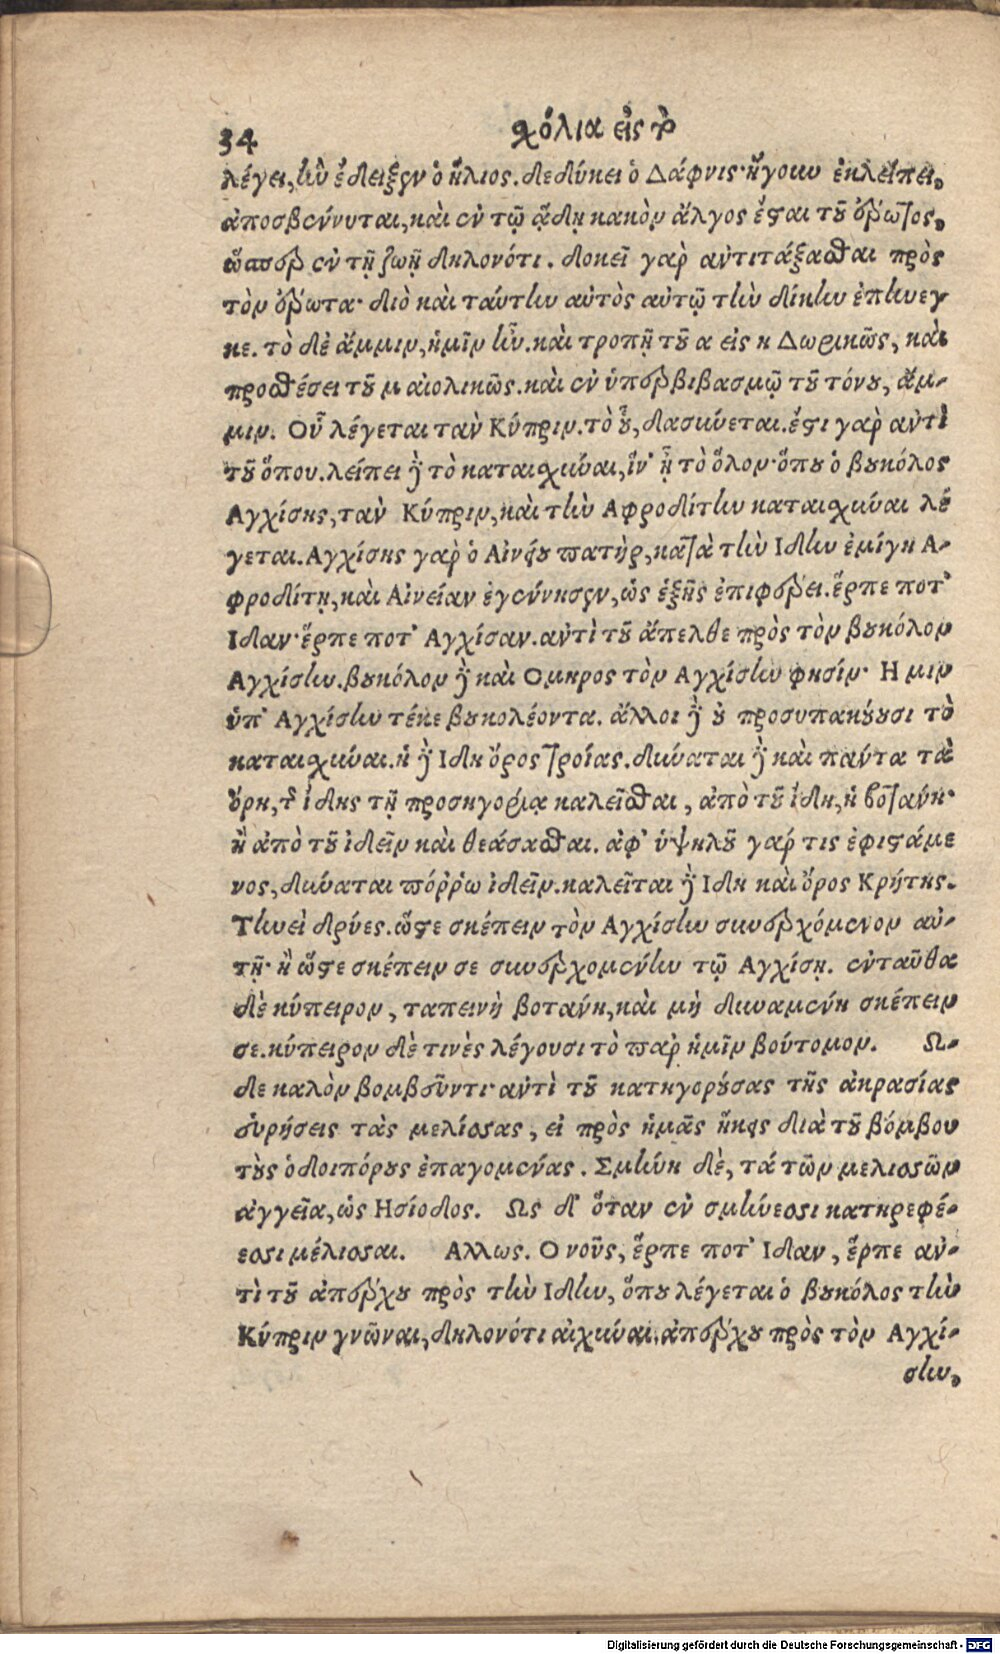 34 σχόλια εἰς τὸ
λέγει, ἣν ἔδειξεν ὁ ἥλιος. δεδύκει ὁ Δάφνις· ἤγουν ἐκλείπει,
ἀποσβέννυται, καὶ ἐν τῷ ᾅδῃ κακὸν ἄλγος ἔσται τοῦ ἔρωτος,
ὥσπερ ἐν τῇ ζωῇ δηλονότι. δοκεῖ γὰρ ἀντιτάξασθαι πρὸς
τὸν ἔρωτα· διὸ καὶ ταύτην αὐτὸς αὐτῷ τὴν δίκην ἐπήνεγ
κε. τὸ δὲ ἄμμιν, ἡμῖν ἦν. καὶ τροπῇ τοῦ α εἰς η Δωρικῶς, καὶ
προσθέσει τοῦ μ αἰολικῶς. καὶ ἐν ὑπερβιβασμῷ τοῦ τόνου, ἄμ-
μιν. Οὗ λέγεται τὰν Κύπριν. τὸ οὗ, δασύνεται. ἔστι γὰρ ἀντὶ
τοῦ ὅπου. λείπει δὲ τὸ καταισχύναι, ἵν' ᾖ τὸ ὅλον· ὅπου ὁ βουκόλος
Αγχίσης, τὰν Κύπριν, καὶ τὴν Αφροδίτην καταισχύναι λέ
γεται. Αγχίσης γὰρ ὁ Αἰνείου πατὴρ, κατὰ τὴν Ιδην ἐμίγη Α-
φροδίτῃ, καὶ Αἰνείαν ἐγέννησεν, ὡς ἑξῆς ἐπιφέρει. ἕρπε ποτ'
Ιδαν· ἕρπε ποτ' Αγχίσαν. ἀντὶ τοῦ ἄπελθε πρὸς τὸν βουκόλον
Αγχίσην. βουκόλον δὲ καὶ Ομηρος τὸν Αγχίσην φησίν· Η μιν
ὑπ' Αγχίσην τέκε βουκολέοντα. ἄλλοι δὲ οὐ προσυπακούουσι τὸ
καταισχύναι. ἡ δὲ Ιδη ὄρος Τροίας. δύναται δὲ καὶ πάντα τὰ
ὄρη, τῇ ἴδης τῇ προσηγορίᾳ καλεῖσθαι, ἀπὸ τοῦ ἴδη, ἡ βοτάνη·
ἢ ἀπὸ τοῦ ἰδεῖν καὶ θεάσασθαι. ἀφ' ὑψηλοῦ γάρ τις ἐφιστάμε
νος, δύναται πόῤῥω ἰδεῖν. καλεῖται δὲ Ιδη καὶ ὄρος Κρήτης.
Τηνεὶ δρύες. ὥστε σκέπειν τὸν Αγχίσην συνερχόμενον αὐ-
τῇ· ἢ ὥστε σκέπειν σε συνερχομένην τῷ Αγχίσῃ. ἐνταῦθα
δὲ κύπειρον, ταπεινὴ βοτάνη, καὶ μὴ δυναμένη σκέπειν
σε. κύπειρον δὲ τινὲς λέγουσι τὸ παρ' ἡμῖν βούτομον. Ω-
δε καλὸν βομβεῦντι· ἀντὶ τοῦ κατηγορούσας τῆς ἀκρασίας
εὑρήσεις τὰς μελίσσας, εἰ πρὸς ἡμᾶς ἥκεις διὰ τοῦ βόμβου
τοὺς ὁδοιπόρους ἐπαγομένας. Σμήνη δὲ, τά τῶν μελισσῶν
ἀγγεῖα, ὡς Ησίοδος. Ως δ' ὅταν ἐν σμήνεσσι κατηρεφέ-
εσσι μέλισσαι. Αλλως. Ο νοῦς, ἕρπε ποτ' Ιδαν, ἕρπε ἀν-
τὶ τοῦ ἀπέρχου πρὸς τὴν Ιδην, ὅπου λέγεται ὁ βουκόλος τὴν
Κύπριν γνῶναι, δηλονότι αἰσχύναι. ἀπέρχου πρὸς τὸν Αγχί-
σην,
Digitalisierung gefördert durch die Deutsche Forschungsgemeinschaft - DFG